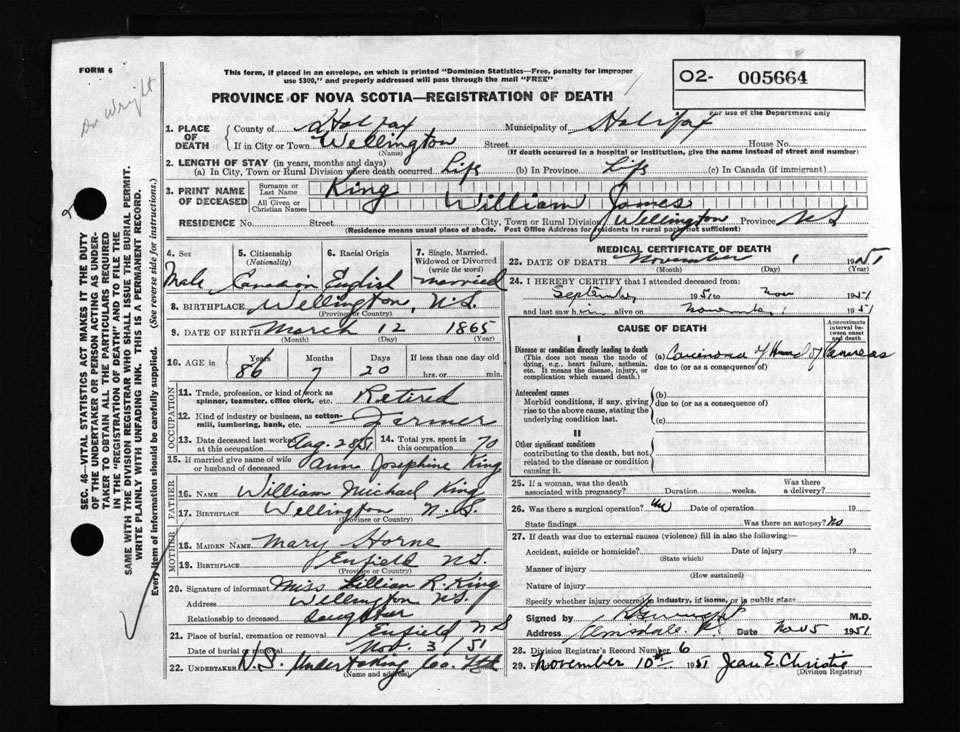 FORM 6
Dr Wright
This form, if placed in an envelope, on which is printed "Dominion Statistics—Free, penalty for improper
use $300," and properly addressed will pass through the mail "FREE"
O2- 005664
For use of the Department only
PROVINCE OF NOVA SCOTIA—REGISTRATION OF DEATH
1. PLACE OF DEATH { County of Halifax Municipality of Halifax
If in City or Town Wellington Street House No.
(Name) (If death occurred in a hospital or institution, give the name instead of street and number)
2. LENGTH OF STAY (in years, months and days)
(a) In City, Town or Rural Division where death occurred Life (b) In Province Life (c) In Canada (if immigrant)
3. PRINT NAME OF DECEASED { Surname or Last Name King
All Given or Christian Names William James
RESIDENCE No. Street City, Town or Rural Division Wellington Province N S
(Residence means usual place of abode. Post Office Address for residents in rural parts not sufficient)
SEC. 46—VITAL STATISTICS ACT MAKES IT THE DUTY
OF THE UNDERTAKER OR PERSON ACTING AS UNDER-
TAKER TO OBTAIN ALL THE PARTICULARS REQUIRED
IN THE "REGISTRATION OF DEATH" AND TO FILE THE
SAME WITH THE DIVISION REGISTRAR WHO SHALL ISSUE THE BURIAL PERMIT.
WRITE PLAINLY WITH UNFADING INK. THIS IS A PERMANENT RECORD.
Every item of information should be carefully supplied. (See reverse side for instructions.)
4. Sex Male
5. Citizenship (Nationality) Canadian
6. Racial Origin English
7. Single, Married, Widowed or Divorced (write the word) married
8. BIRTHPLACE Wellington, N.S.
(Province or Country)
9. DATE OF BIRTH March 12 1865
(Month) (Day) (Year)
10. AGE in Years Months Days If less than one day old
86 7 20 hrs. or min.
OCCUPATION
11. Trade, profession, or kind of work as spinner, teamster, office clerk, etc. Retired
12. Kind of industry or business, as cotton-mill, lumbering, bank, etc. Farmer
13. Date deceased last worked at this occupation Aug. 28/51 14. Total yrs. spent in this occupation 70
15. If married give name of wife or husband of deceased Ann Josephine King
FATHER
16. NAME William Michael King
17. BIRTHPLACE Wellington N.S.
(Province or Country)
MOTHER
18. MAIDEN NAME Mary Horne
19. BIRTHPLACE Enfield N.S.
(Province or Country)
20. Signature of informant Miss Lillian R. King
Address Wellington N.S.
Relationship to deceased daughter
21. Place of burial, cremation or removal Enfield N S
Date of burial or removal Nov. 3/51
22. UNDERTAKER N.S. Undertaking Co. Ltd
(Name and address)
MEDICAL CERTIFICATE OF DEATH
23. DATE OF DEATH November 1 1951
(Month) (Day) (Year)
24. I HEREBY CERTIFY that I attended deceased from:
September 1951 to Nov 1951
and last saw him alive on November 1 1951
CAUSE OF DEATH
Approximate interval between onset and death
I
Disease or condition directly leading to death
(This does not mean the mode of dying, e.g., heart failure, asthenia, etc. It means the disease, injury, or complication which caused death.)
(a) Carcinoma of Head of Pancreas
due to (or as a consequence of)
Antecedent causes
Morbid conditions, if any, giving rise to the above cause, stating the underlying condition last.
(b)
due to (or as a consequence of)
(c)
II
Other significant conditions
contributing to the death, but not related to the disease or condition causing it.
25. If a woman, was the death associated with pregnancy? Duration weeks. Was there a delivery?
26. Was there a surgical operation? no Date of operation 19
State findings Was there an autopsy? no
27. If death was due to external causes (violence) fill in also the following:
Accident, suicide or homicide? Date of injury 19
(State which)
Manner of injury
(How sustained)
Nature of injury
Specify whether injury occurred in industry, in home, or in public place
Signed by M.D.
Address Armsdale Date Nov 5 1951
28. Division Registrar's Record Number 6
29. November 10th 1951 Jean E. Christie
(Division Registrar)